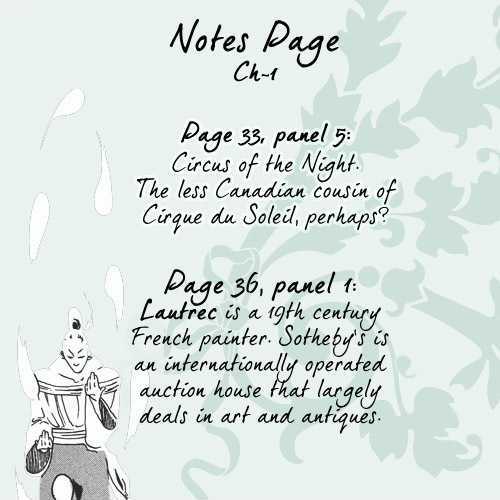 Notes Page
Ch~1
Page 33, panel 5:
Circus of the Night.
The less Canadian cousin of
Cirque du Soleil, perhaps?
Page 36, panel 1:
Lautrec is a 19th century
French painter. Sotheby's is
an internationally operated
auction house that largely
deals in art and antiques.